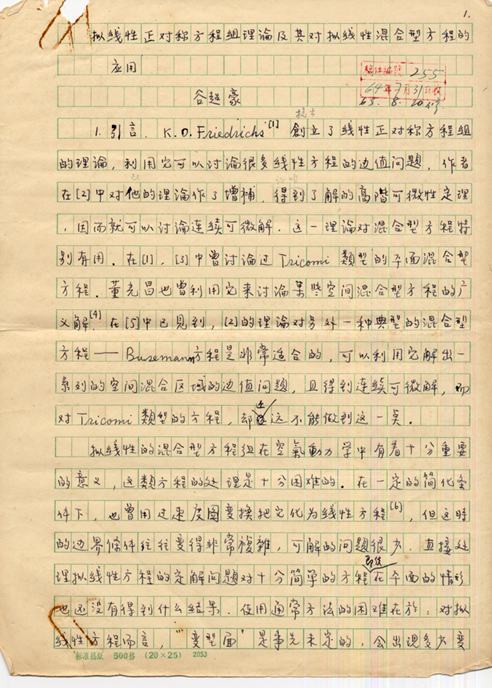 1.
拟线性正对称方程组理论及其对拟线性混合型方程的
应用
255
64年7月31日收
谷超豪
1. 引言. K.O. Friedrichs[1] 創立了线性正对称方程组
的理论, 利用它可以讨论很多线性方程的边值问题, 作者
在[2]中对他的理论作了增補, 得到了解的高階可微性定理
, 因而就可以讨论連续可微解. 这一理论对混合型方程特
别有用. 在[1], [3]中曾讨论过 Tricomi 类型的平面混合型
方程. 董光昌也曾利用它来讨论某些空间混合型方程的广
义解[4] 在[5]中已見到, [2]的理论对另外一种典型的混合型
方程——Busemann方程是非常适合的, 可以利用它解出一
系列的空间混合区域的边值问题, 且得到连续可微解, 而
对 Tricomi 类型的方程, 却还远不能做到这一点.
拟线性的混合型方程组在空氣動力学中有着十分重要
的意义, 这類方程的处理是十分困难的. 在一定的简化条
件下, 也曾用过速度图变换把它化为线性方程[6], 但这時
的边界條件往往变得非常複雜, 可解的问题很少. 直接处
理拟线性方程的定解问题对十分简单的方程即使在平面的情形
也还没有得到什么结果. 使用通常方法的困难在於: 对拟
线性方程而言, “变型面”是事先未定的, 会出现多少变
标准稿紙 500格 (20×25) 2053